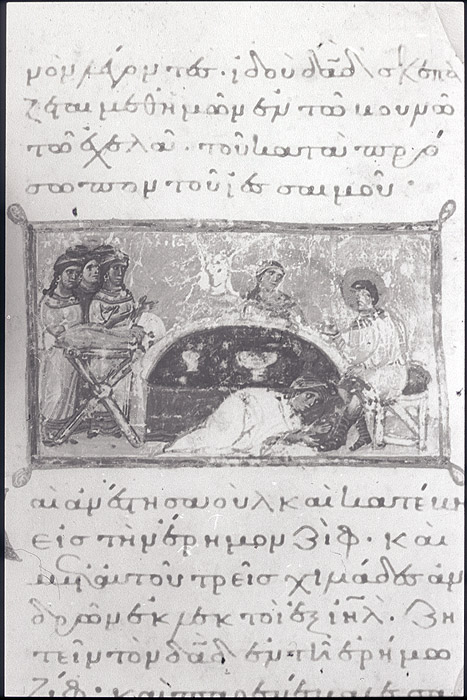 μὸν λέγοντες· ἰδοὺ δᾱδ σκεπά
ζεται μεθ ἡμῶν ἐν τῶ βουνῶ
τοῦ ἐχελὰ· τοῦ κατὰ πρό
σωπον τοῦ ἰεσσαιμοῦ·
αι ἀνέστη σαοὺλ καὶ κατέβη
εἰς τὴν ἔρημον ζίφ· καὶ
μετ αὐτοῦ τρεῖς χιλιάδες ἀν
δρῶν ἐκλεκτοὶ ἐξ ἰη̄λ· ζη
τεῖν τὸν δᾱδ ἐν τῆ ἐρήμω
ζίφ· καὶ